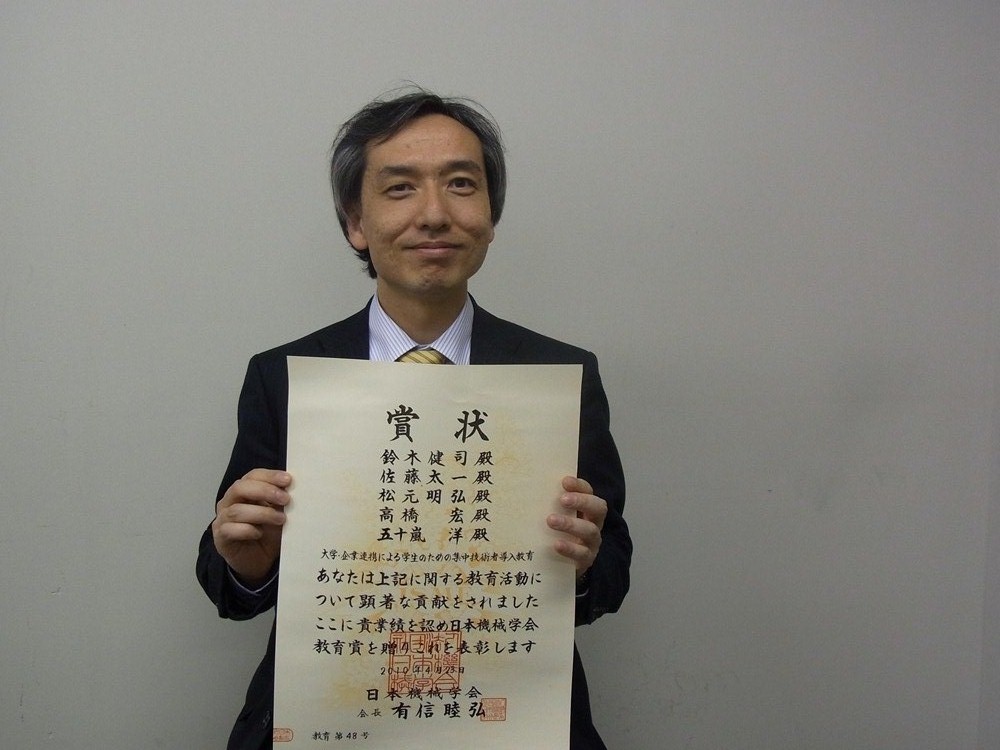 賞 状
鈴木健司殿
佐藤太一殿
松元明弘殿
高橋 宏殿
五十嵐 洋殿
大学・企業連携による学生のための集中技術者導入教育
あなたは上記に関する教育活動に
ついて顕著な貢献をされました
ここに貴業績を認め日本機械学会
教育賞を贈りこれを表彰します
2010年4月23日
日本機械学会
会長 有信睦弘
教育 第48号